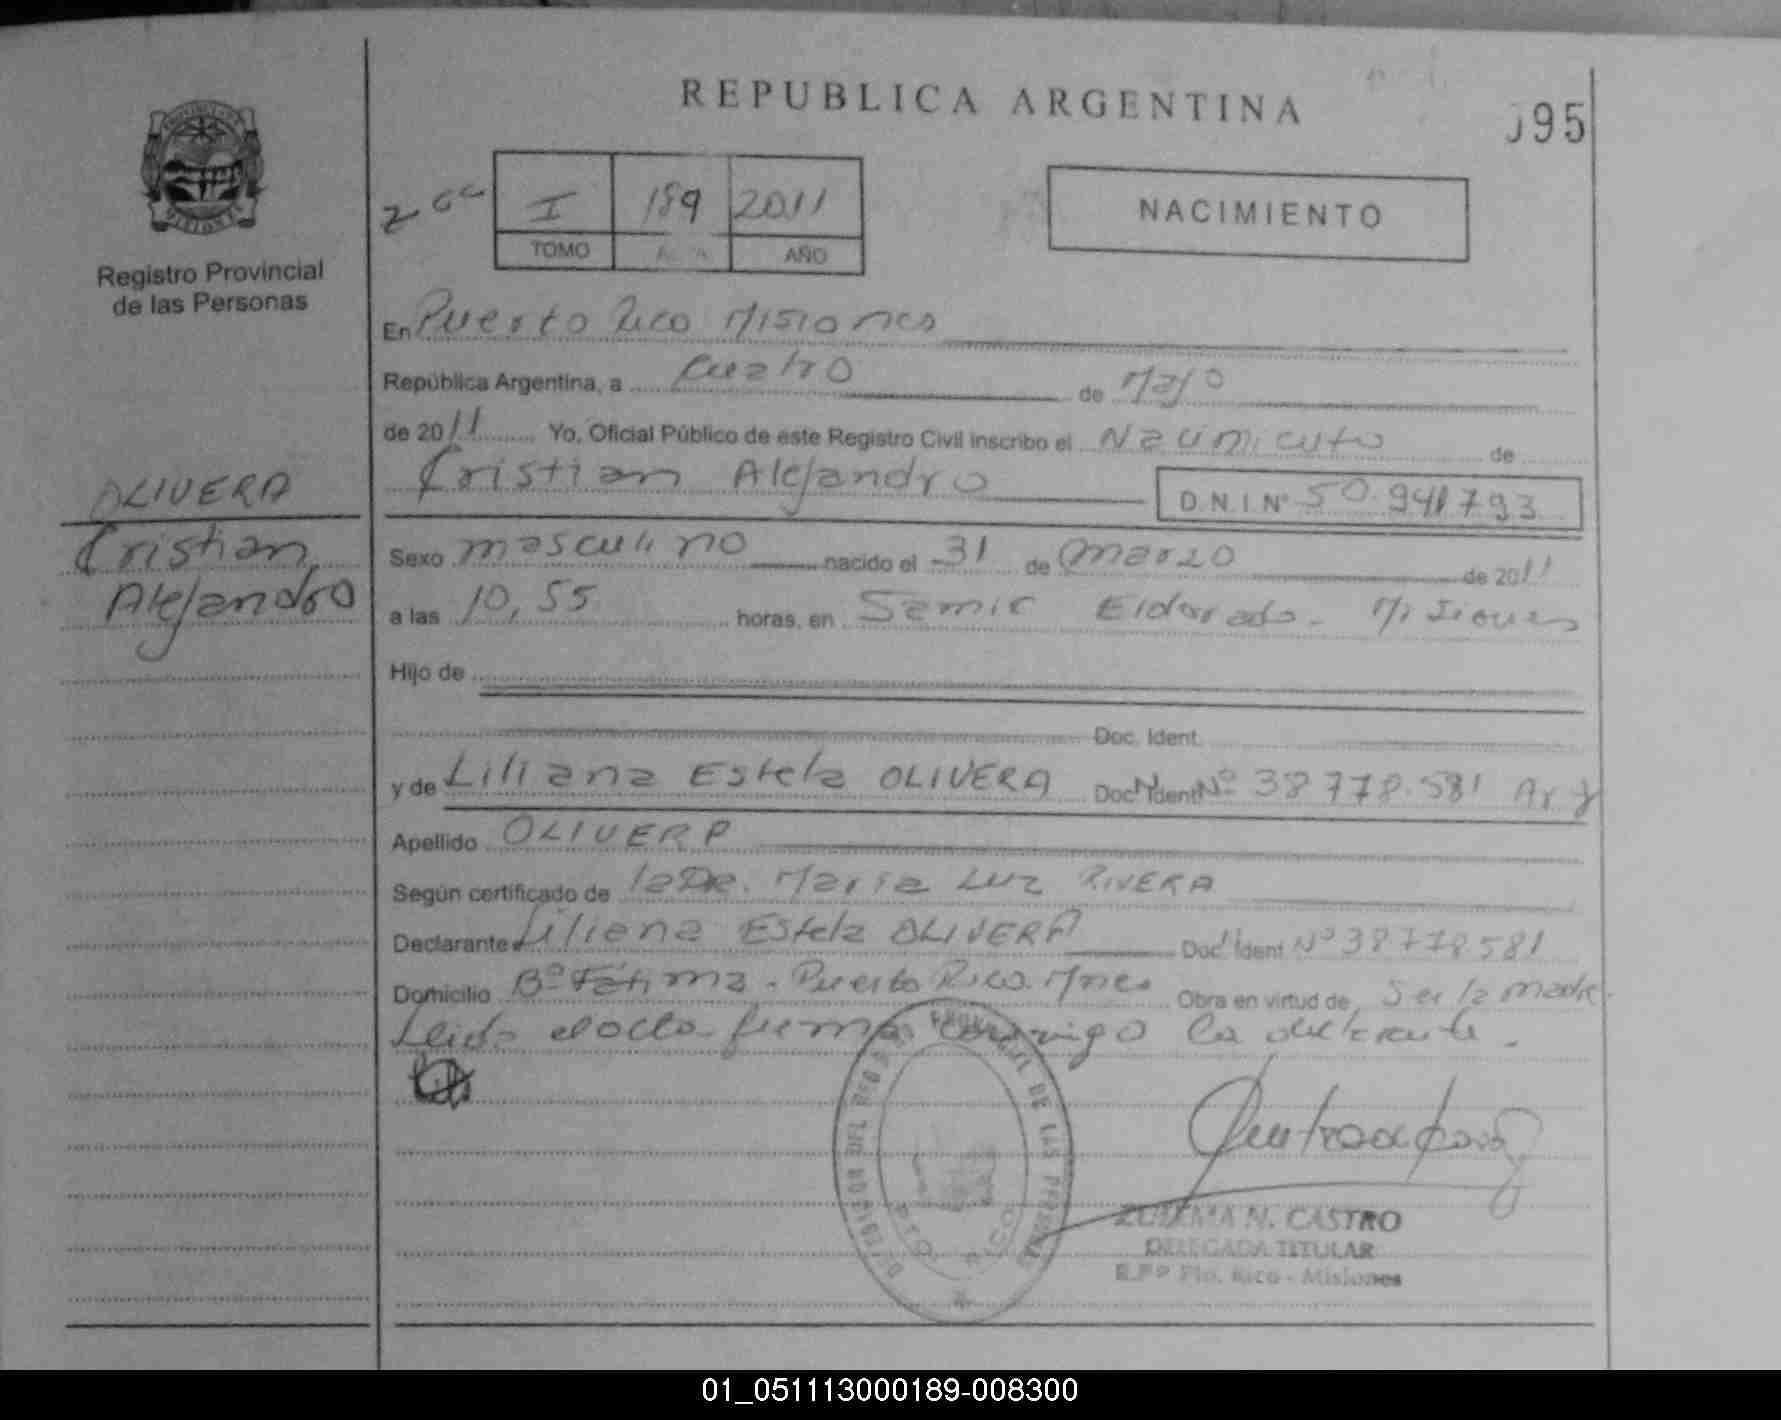 REPUBLICA ARGENTINA
095
PROVINCIA DE MISIONES
Registro Provincial
de las Personas
I 189 2011
TOMO ACTA AÑO
NACIMIENTO
En Puerto Rico Misiones
República Argentina, a cuatro de Mayo
de 2011 Yo, Oficial Público de este Registro Civil inscribo el Nacimiento de
Cristian Alejandro D.N.I.Nº 50.941793
OLIVERA
Cristian
Alejandro
Sexo masculino nacido el 31 de marzo de 2011
a las 10,55 horas, en Samic Eldorado - Misiones
Hijo de
Doc. Ident.
y de Liliana Estela OLIVERA Doc. Ident. Nº 38778.581 Arg
Apellido OLIVERA
Según certificado de la Dra. Maria Luz RIVERA
Declarante Liliana Estela OLIVERA Doc. Ident Nº 38778581
Domicilio Bº Fátima - Puerto Rico. Mnes Obra en virtud de Ser la madre.
Leida el acta firma conmigo la declarante.
DIRECCION DEL REG. PROVINCIAL DE LAS PERSONAS
PTO. RICO
ZULEMA N. CASTRO
DELEGADA TITULAR
R.P.P Pto. Rico - Misiones
01_051113000189-008300